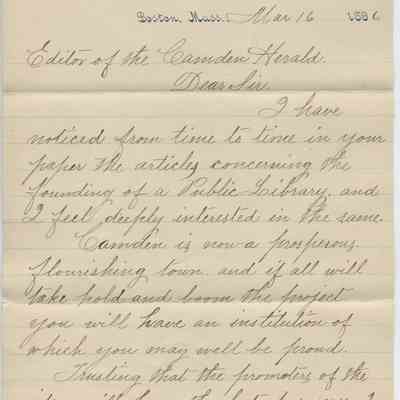 Boston, Mass. Mar 16 1896
Editor of the Camden Herald.
Dear Sir.
I have
noticed from time to time in your
paper the articles concerning the
founding of a Public Library, and
I feel deeply interested in the same.
Camden is now a prosperous
flourishing town and if all will
take hold and boom the project
you will have an institution of
which you may well be proud.
Trusting that the promoters of the